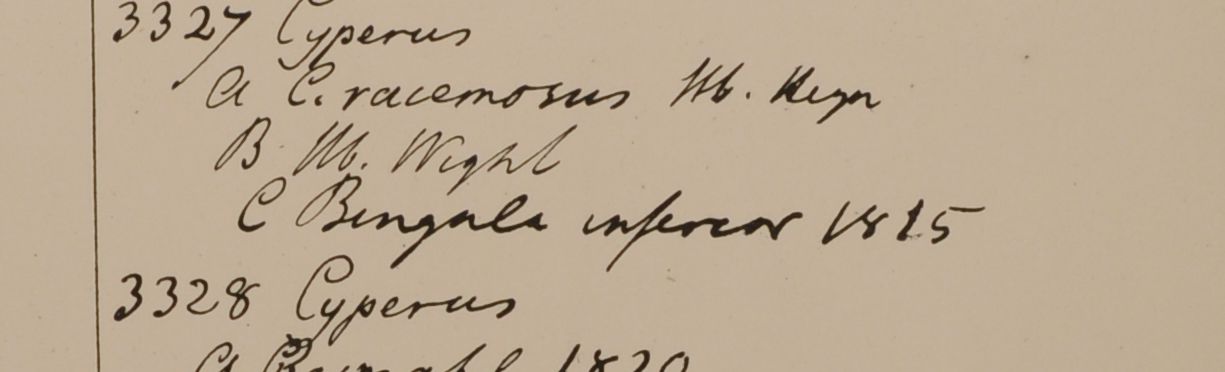 3327 Cyperus
a C. racemosus Hb. Heyn
B Hb. Wight
C Bengala inferior 1815
3328 Cyperus
1820